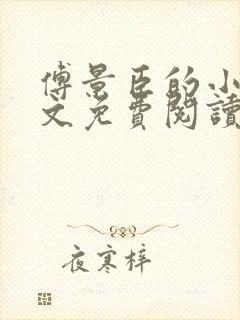 傅景臣的小
文免費閱讀
夜寒梓